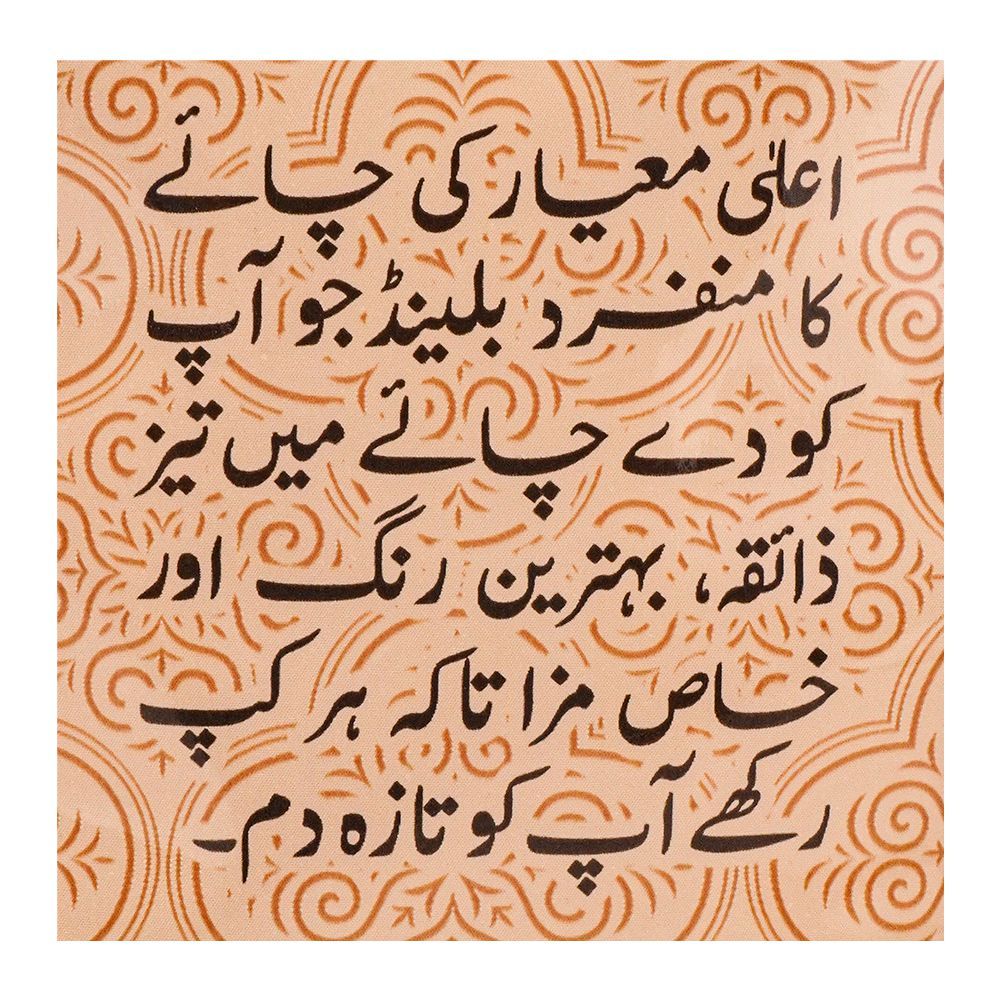 اعلیٰ معیار کی چائے
کا منفرد بلینڈ جو آپ
کو دے چائے میں تیز
ذائقہ، بہترین رنگ اور
خاص مزا تاکہ ہر کپ
رکھے آپ کو تازہ دم۔